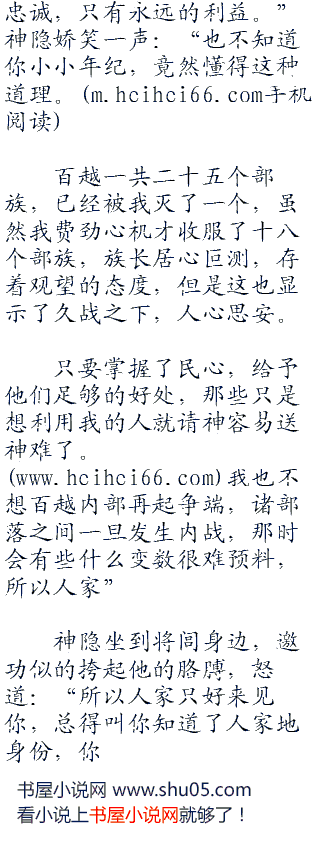 忠诚，只有永远的利益。”
神隐娇笑一声：“也不知道
你小小年纪，竟然懂得这种
道理。(m.hcihci66.com手机
阅读)
百越一共二十五个部
族，已经被我灭了一个，虽
然我费劲心机才收服了十八
个部族，族长居心叵测，存
着观望的态度，但是这也显
示了久战之下，人心思安。
只要掌握了民心，给予
他们足够的好处，那些只是
想利用我的人就请神容易送
神难了。
(www.hcihci66.com)我也不
想百越内部再起争端，诸部
落之间一旦发生内战，那时
会有些什么变数很难预料，
所以人家”
神隐坐到将闾身边，邀
功似的挎起他的胳膊，怒
道：“所以人家只好来见
你，总得叫你知道了人家地
身份，你
书屋小说网 www.shu05.com
看小说上书屋小说网就够了！